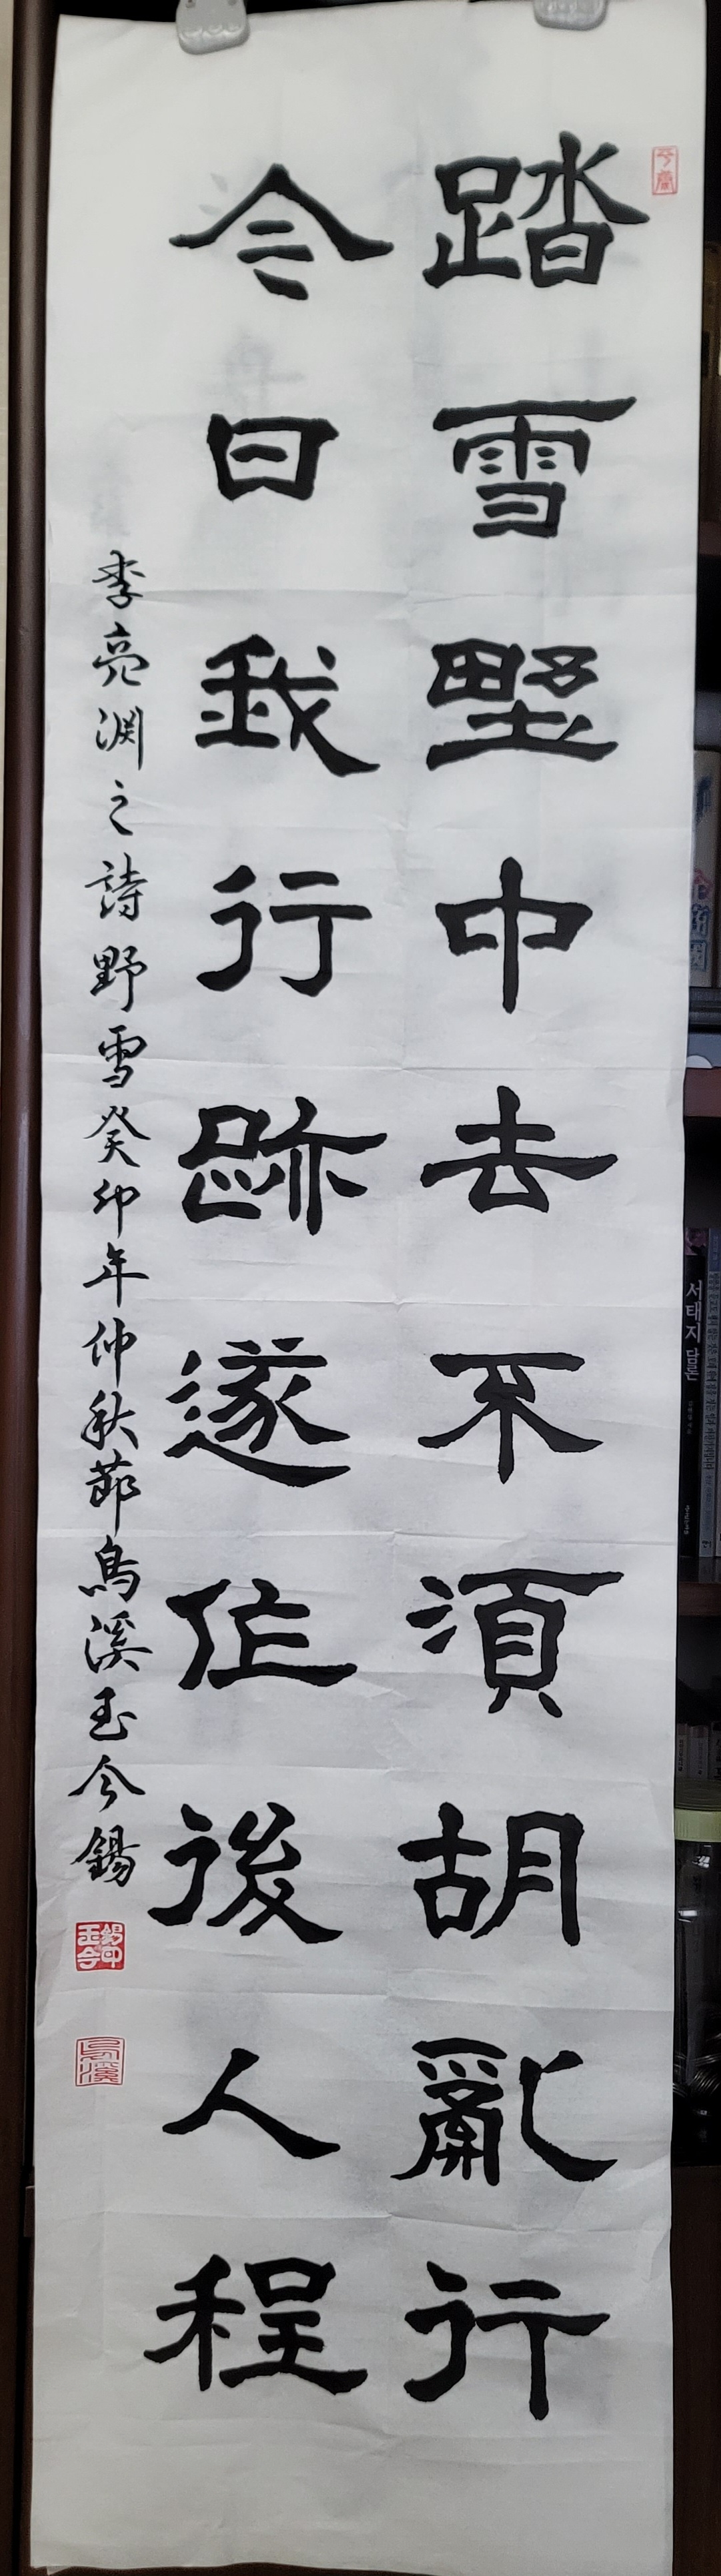 踏雪野中去不須胡亂行
今日我行跡遂作後人程
李亮淵之詩野雪癸卯年仲秋節烏溪玉今錫
서태지 담론